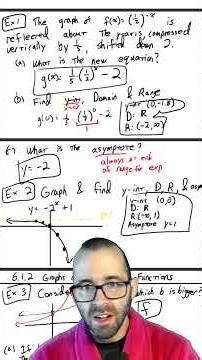 Ex 1 The graph of f(x)=(1/2)^-x is
reflected about the y-axis, compressed
vertically by 1/5, shifted down 2.
(a) What is the new equation?
g(x): 1/5 (1/2)^x - 2
(b) Find y-int, Domain & Range
g(0): 1/5 (1/2)^0 - 2
1
y-int (0,-1.8)
D: R
R: (-2,∞)
What is the asymptote?
y = -2
always at end
of range for exp
Ex 2 Graph & find y-int, D, R, & asy
y = -2^x + 1
y-int (0,0)
D: R
R: (-∞, 1)
Asymptote y=1
6.1.2 Graphs Functions
Ex 3 Consid which b is bigger?
f
(a) If